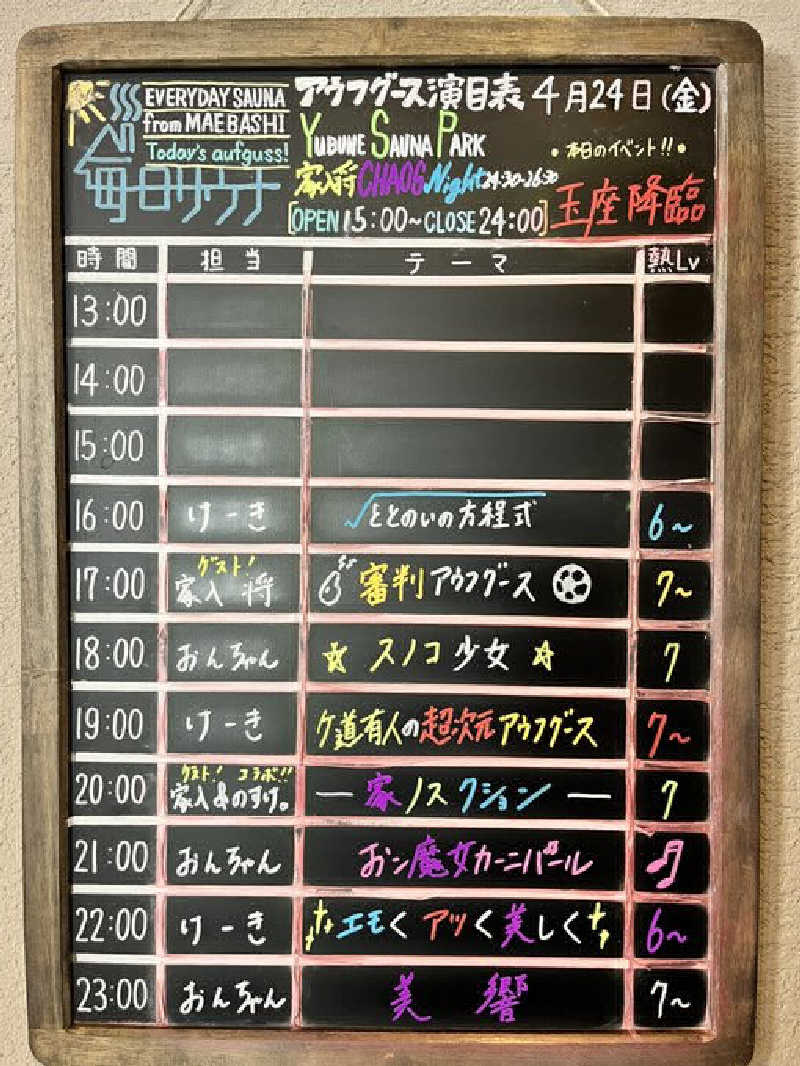 EVERYDAY SAUNA
from MAEBASHI
Today's aufguss!
毎日サウナ
アウフグース演目表 4月24日(金)
YUBUNE SAUNA PARK
•本日のイベント!!•
家入将CHAOS Night 24:30-26:30
玉座降臨
[OPEN 15:00~CLOSE 24:00]
時間 担当 テーマ 熱Lv
13:00
14:00
15:00
16:00 けーき √ととのいの方程式 6~
17:00 ゲスト! 家入 将 審判アウフグース 7~
18:00 おんちゃん ☆ スノコ少女 ☆ 7
19:00 けーき ケ道有人の超次元アウフグース 7~
20:00 ゲスト! コラボ!! 家入&のすけ。 ー家ノスクションー 7
21:00 おんちゃん おン魔女カーニバール ♫
22:00 けーき エモく アツく 美しく 6~
23:00 おんちゃん 美 響 7~